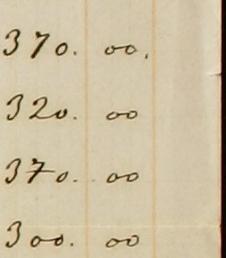 370. 00.
320. 00
370. 00
300. 00